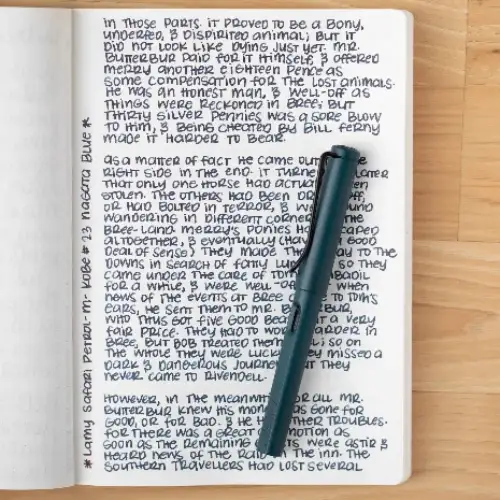 IN THOSE PARTS. IT PROVED TO BE A BONY,
UNDERFED, & DISPIRITED ANIMAL; BUT IT
DID NOT LOOK LIKE DYING JUST YET. MR.
BUTTERBUR PAID FOR IT HIMSELF, & OFFERED
MERRY ANOTHER EIGHTEEN PENCE AS
SOME COMPENSATION FOR THE LOST ANIMALS.
HE WAS AN HONEST MAN, & WELL-OFF AS
THINGS WERE RECKONED IN BREE; BUT
THIRTY SILVER PENNIES WAS A SORE BLOW
TO HIM, & BEING CHEATED BY BILL FERNY
MADE IT HARDER TO BEAR.
AS A MATTER OF FACT HE CAME OUT
RIGHT SIDE IN THE END. IT LATER
THAT ONLY ONE HORSE HAD
STOLEN. THE OTHERS HAD BEEN
OR HAD BOLTED IN TERROR, &
WANDERING IN DIFFERENT THE
BREE-LAND. MERRY'S PONIES HAD
ALTOGETHER, & EVENTUALLY GOOD
DEAL OF SENSE) THEY MADE TO THE
DOWNS IN SEARCH OF FATTY SO THEY
CAME UNDER THE CARE OF
FOR A WHILE, & WERE WHEN
NEWS OF THE EVENTS AT BREE TOM'S
EARS, HE SENT THEM TO MR.
WHO THUS GOT FIVE GOOD A VERY
FAIR PRICE. THEY HAD TO HARDER IN
BREE, BUT BOB TREATED SO ON
THE WHOLE THEY WERE THEY MISSED A
DARK & DANGEROUS THEY
NEVER CAME TO RIVENDELL.
HOWEVER, IN THE ALL MR.
BUTTERBUR KNEW HIS GONE FOR
GOOD, OR FOR BAD. & HE TROUBLES.
FOR THERE WAS A GREAT AS
SOON AS THE REMAINING WERE ASTIR &
HEARD NEWS OF THE THE INN. THE
SOUTHERN TRAVELLERS HAD LOST SEVERAL
*LAMY SAFARI PETROL-M- KOBE #23 NAGATA BLUE*